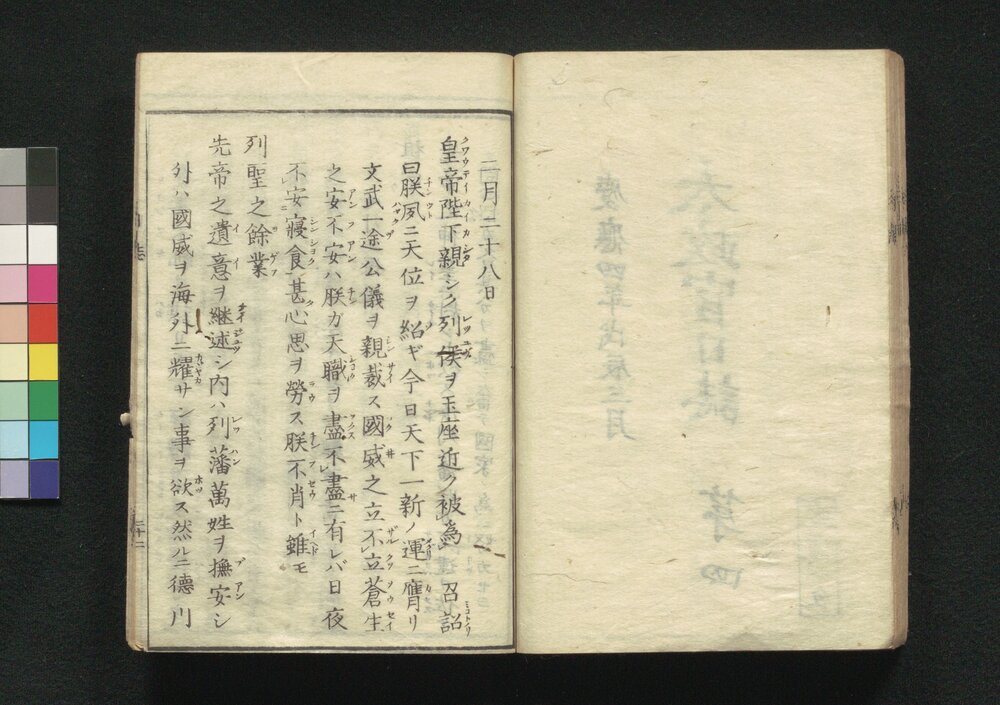 二月二十八日
皇帝陛下親シク列侯ヲ玉座近ク被為 召詔
曰朕夙ニ天位ヲ紹ギ今日天下一新ノ運ニ膺リ
文武一途公儀ヲ親裁ス國威之立不立蒼生
之安不安ハ朕ガ天職ヲ盡不盡ニ有レバ日夜
不安寝食甚心思ヲ勞ス朕不肖ト雖モ
列聖之餘業
先帝之遺意ヲ継述シ内ハ列藩萬姓ヲ撫安シ
外ハ國威ヲ海外ニ耀サン事ヲ欲ス然ルニ德川
二十二